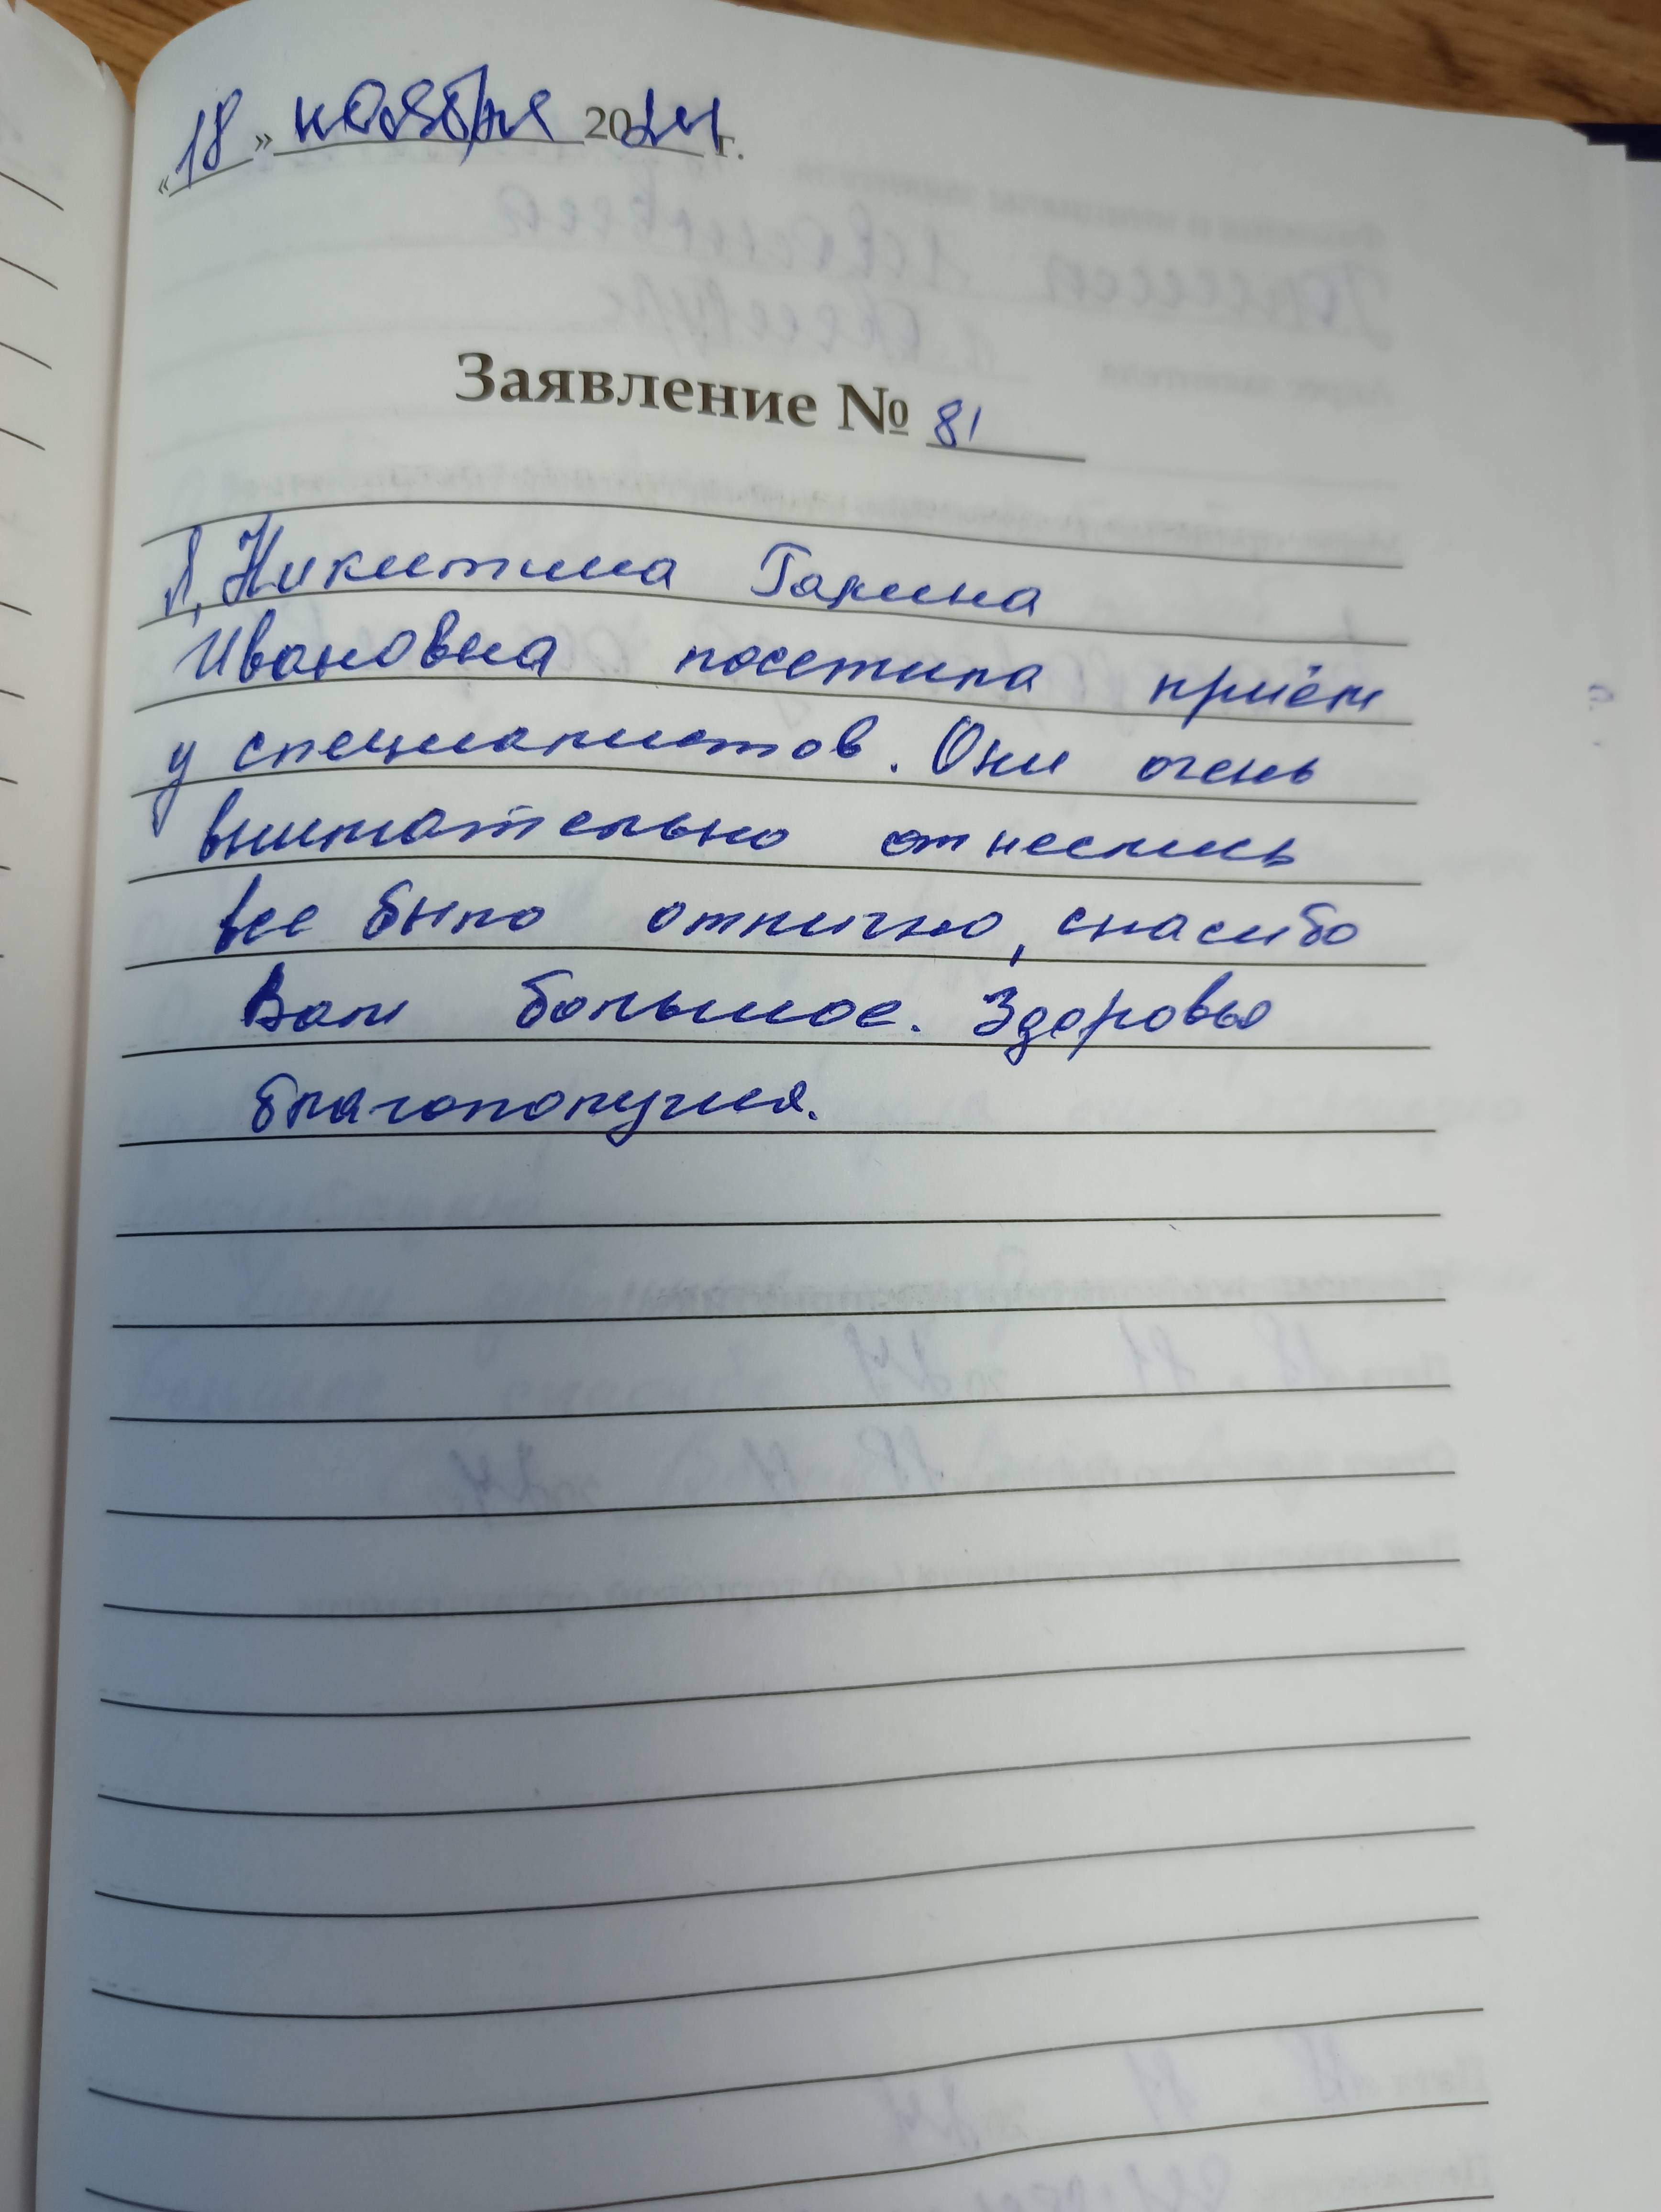 «18» ноября 2024 г.
Заявление № 81
Я, Никитина Галина
Ивановна посетила приём
у специалистов. Они очень
внимательно отнеслись
все было отлично, спасибо
Вам большое. Здоровья
благополучия.